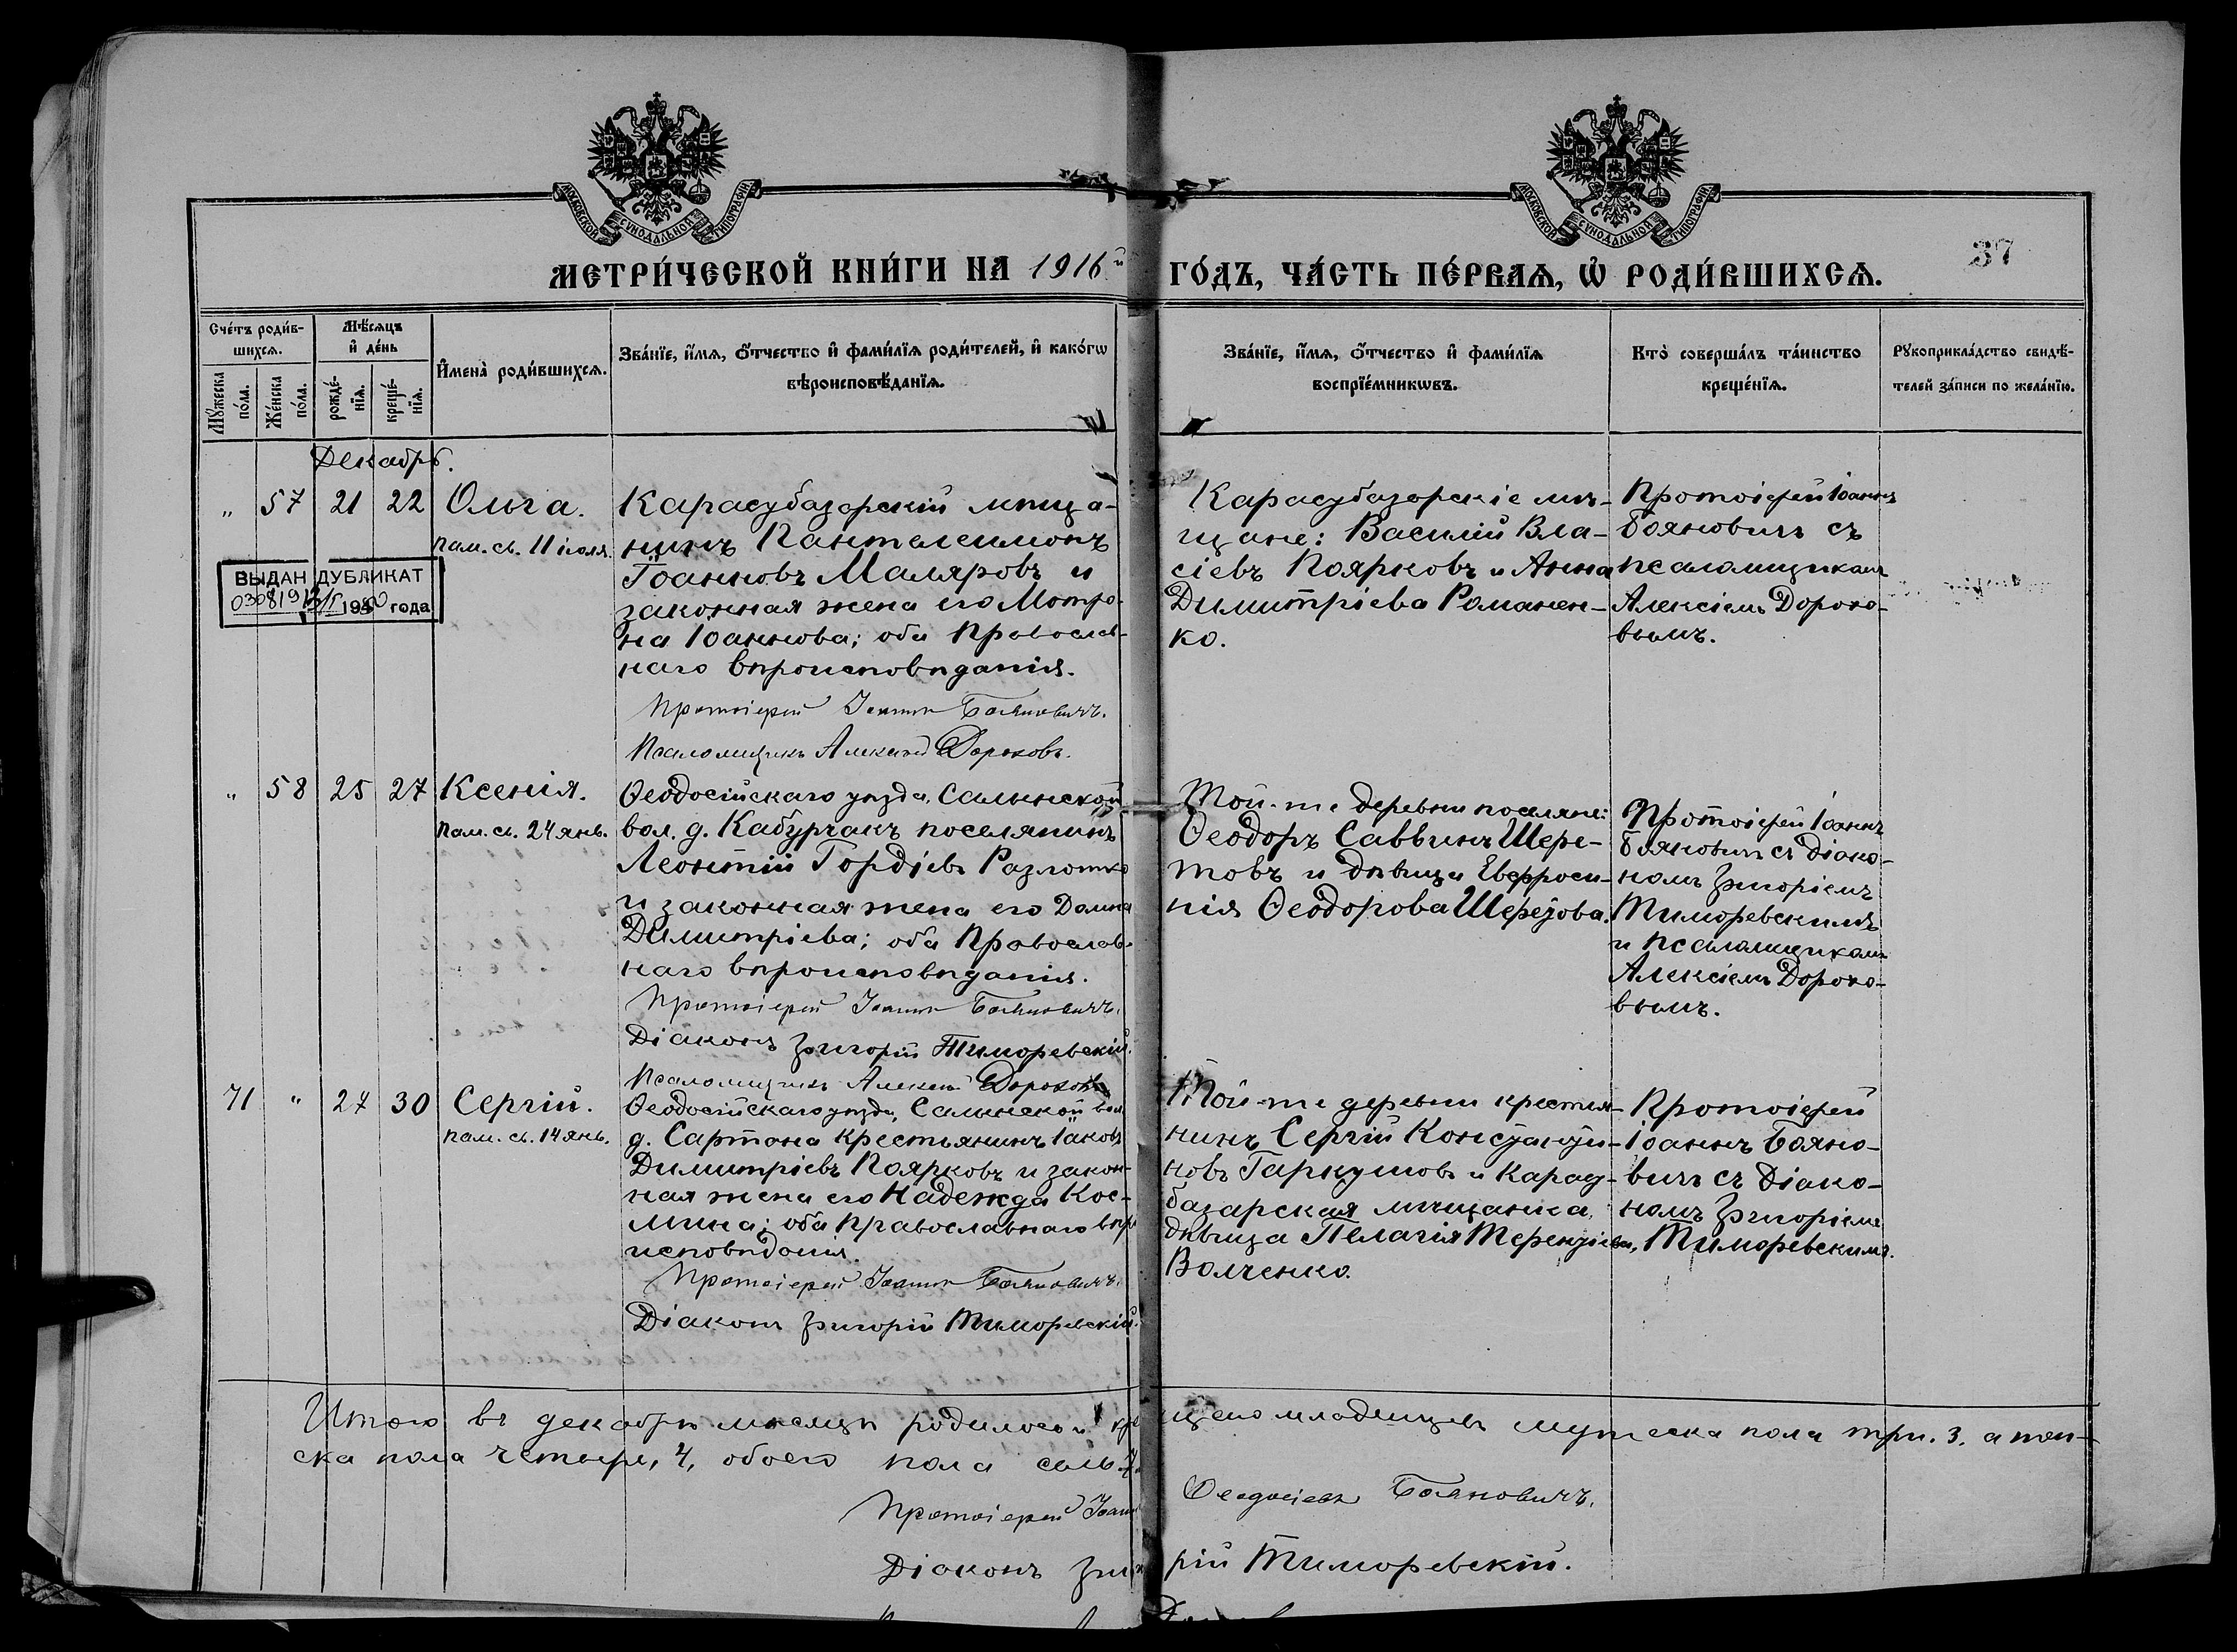 МОСКОВСКОЙ СѴНОДАЛЬНОЙ ТИПОГРАФІИ
МОСКОВСКОЙ СѴНОДАЛЬНОЙ ТИПОГРАФІИ
МЕТРИ́ЧЕСКОЙ КНИ́ГИ НА 1916й ГО́ДЪ, ЧА́СТЬ ПЕ́РВАѦ, Ѡ҆ РОДИ́ВШИХСѦ.
37
Сче́тъ роди́в-
шихсѧ.
Мѣ́сѧцъ
и҆ де́нь
И҆мена̀ роди́вшихсѧ.
Зва́нїе, и҆́мѧ, ѻ҆́тчество и҆ фами́лїѧ роди́телей, и҆ како́гѡ
вѣроисповѣ́данїѧ.
Зва́нїе, и҆́мѧ, ѻ҆́тчество и҆ фами́лїѧ
воспрїе́мникѡвъ.
Кто̀ соверша́лъ та́инство
креще́нїѧ.
Рꙋкоприкла́дство свидѣ́-
телей за́писи по жела́нїю.
Мꙋ́жеска
по́ла.
Же́нска
по́ла.
рожде́-
нїѧ.
креще́-
нїѧ.
Декабрь.
" 57 21 22 Ольга.
пам. св. 11 іюля.
ВЫДАН ДУБЛИКАТ
года
Карасубазарскій мѣща-
нинъ Пантелеимонъ
Іоанновъ Маляровъ и
законная жена его Матро-
на Іоаннова; оба Православ-
наго вѣроисповѣданія.
Протоіерей Іоаннъ Бояновичъ.
Псаломщикъ Алексій Дороховъ.
Карасубазарскіе мѣ-
щане: Василій Вла-
сіевъ Поярковъ и Анна
Димитріева Романен-
ко.
Протоіерей Іоаннъ
Бояновичъ съ
псаломщикомъ
Алексіемъ Дорохо-
вымъ.
" 58 25 27 Ксенія.
пам. св. 24 янв.
Ѳеодосійскаго уѣзда, Салынской
вол. д. Кабурчакъ поселянинъ
Леонтій Гордіевъ Разлотко
и законная жена его Домна
Димитріева; оба Православ-
наго вѣроисповѣданія.
Протоіерей Іоаннъ Бояновичъ.
Діаконъ Григорій Тиморевскій.
Псаломщикъ Алексій Дороховъ
Той-же деревни поселяне:
Ѳеодоръ Саввинъ Шере-
товъ и дѣвица Евфроси-
нія Ѳеодорова Шеретова.
Протоіерей Іоаннъ
Бояновичъ съ діако-
номъ Григоріемъ
Тиморевскимъ
и псаломщикомъ
Алексіемъ Дорохо-
вымъ.
71 " 27 30 Сергій.
пам. св. 14 янв.
Ѳеодосійскаго уѣзда, Салынской вол.
д. Сартана крестьянинъ Іаковъ
Димитріевъ Поярковъ и закон-
ная жена его Надежда Кос-
мина; оба православнаго вѣро
исповѣданія.
Протоіерей Іоаннъ Бояновичъ.
Діаконъ Григорій Тиморевскій.
Той-же деревни крестья-
нинъ Сергій Константи-
новъ Гаркушовъ и Карасу-
базарская мѣщанка,
дѣвица Пелагія Терентіева,
Волченко.
Протоіерей
Іоаннъ Бояно-
вичъ съ Діако-
номъ Григоріемъ
Тиморевскимъ.
Итого въ декабрѣ мѣсяцѣ родилось и крещено младенцевъ мужеска пола три. 3. а жен-
ска пола четыре, 4, обоего пола семь.
Протоіерей Іоаннъ Ѳеодосіевъ Бояновичъ.
Діаконъ Григорій Тиморевскій.